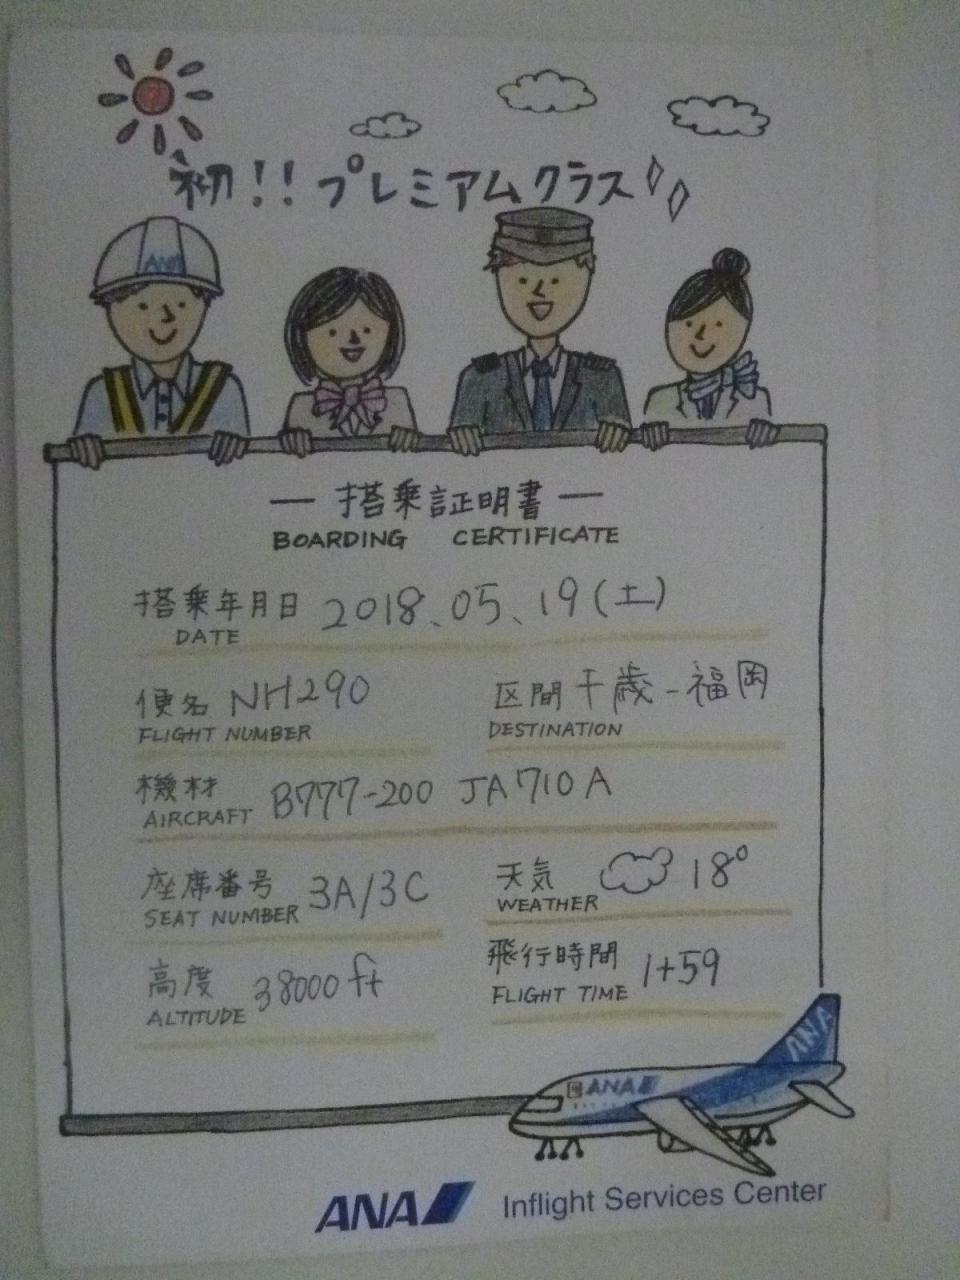 初!! プレミアムクラス
ANA
— 搭乗証明書 —
BOARDING CERTIFICATE
搭乗年月日 2018.05.19(土)
DATE
便名 NH290 区間 千歳-福岡
FLIGHT NUMBER DESTINATION
機材 B777-200 JA710A
AIRCRAFT
座席番号 3A/3C 天気 18°
SEAT NUMBER WEATHER
高度 38000ft 飛行時間 1+59
ALTITUDE FLIGHT TIME
ANA
ANA
ANA Inflight Services Center